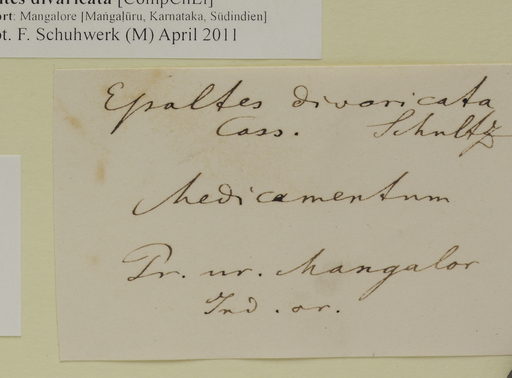 divaricata [CompChEr]
ort: Mangalore [Maṅgalūru, Karnataka, Südindien]
ot. F. Schuhwerk (M) April 2011
Epaltes divaricata
Cass. Schultz
Medicamentum
Pr. ur. Mangalor
Ind. or.